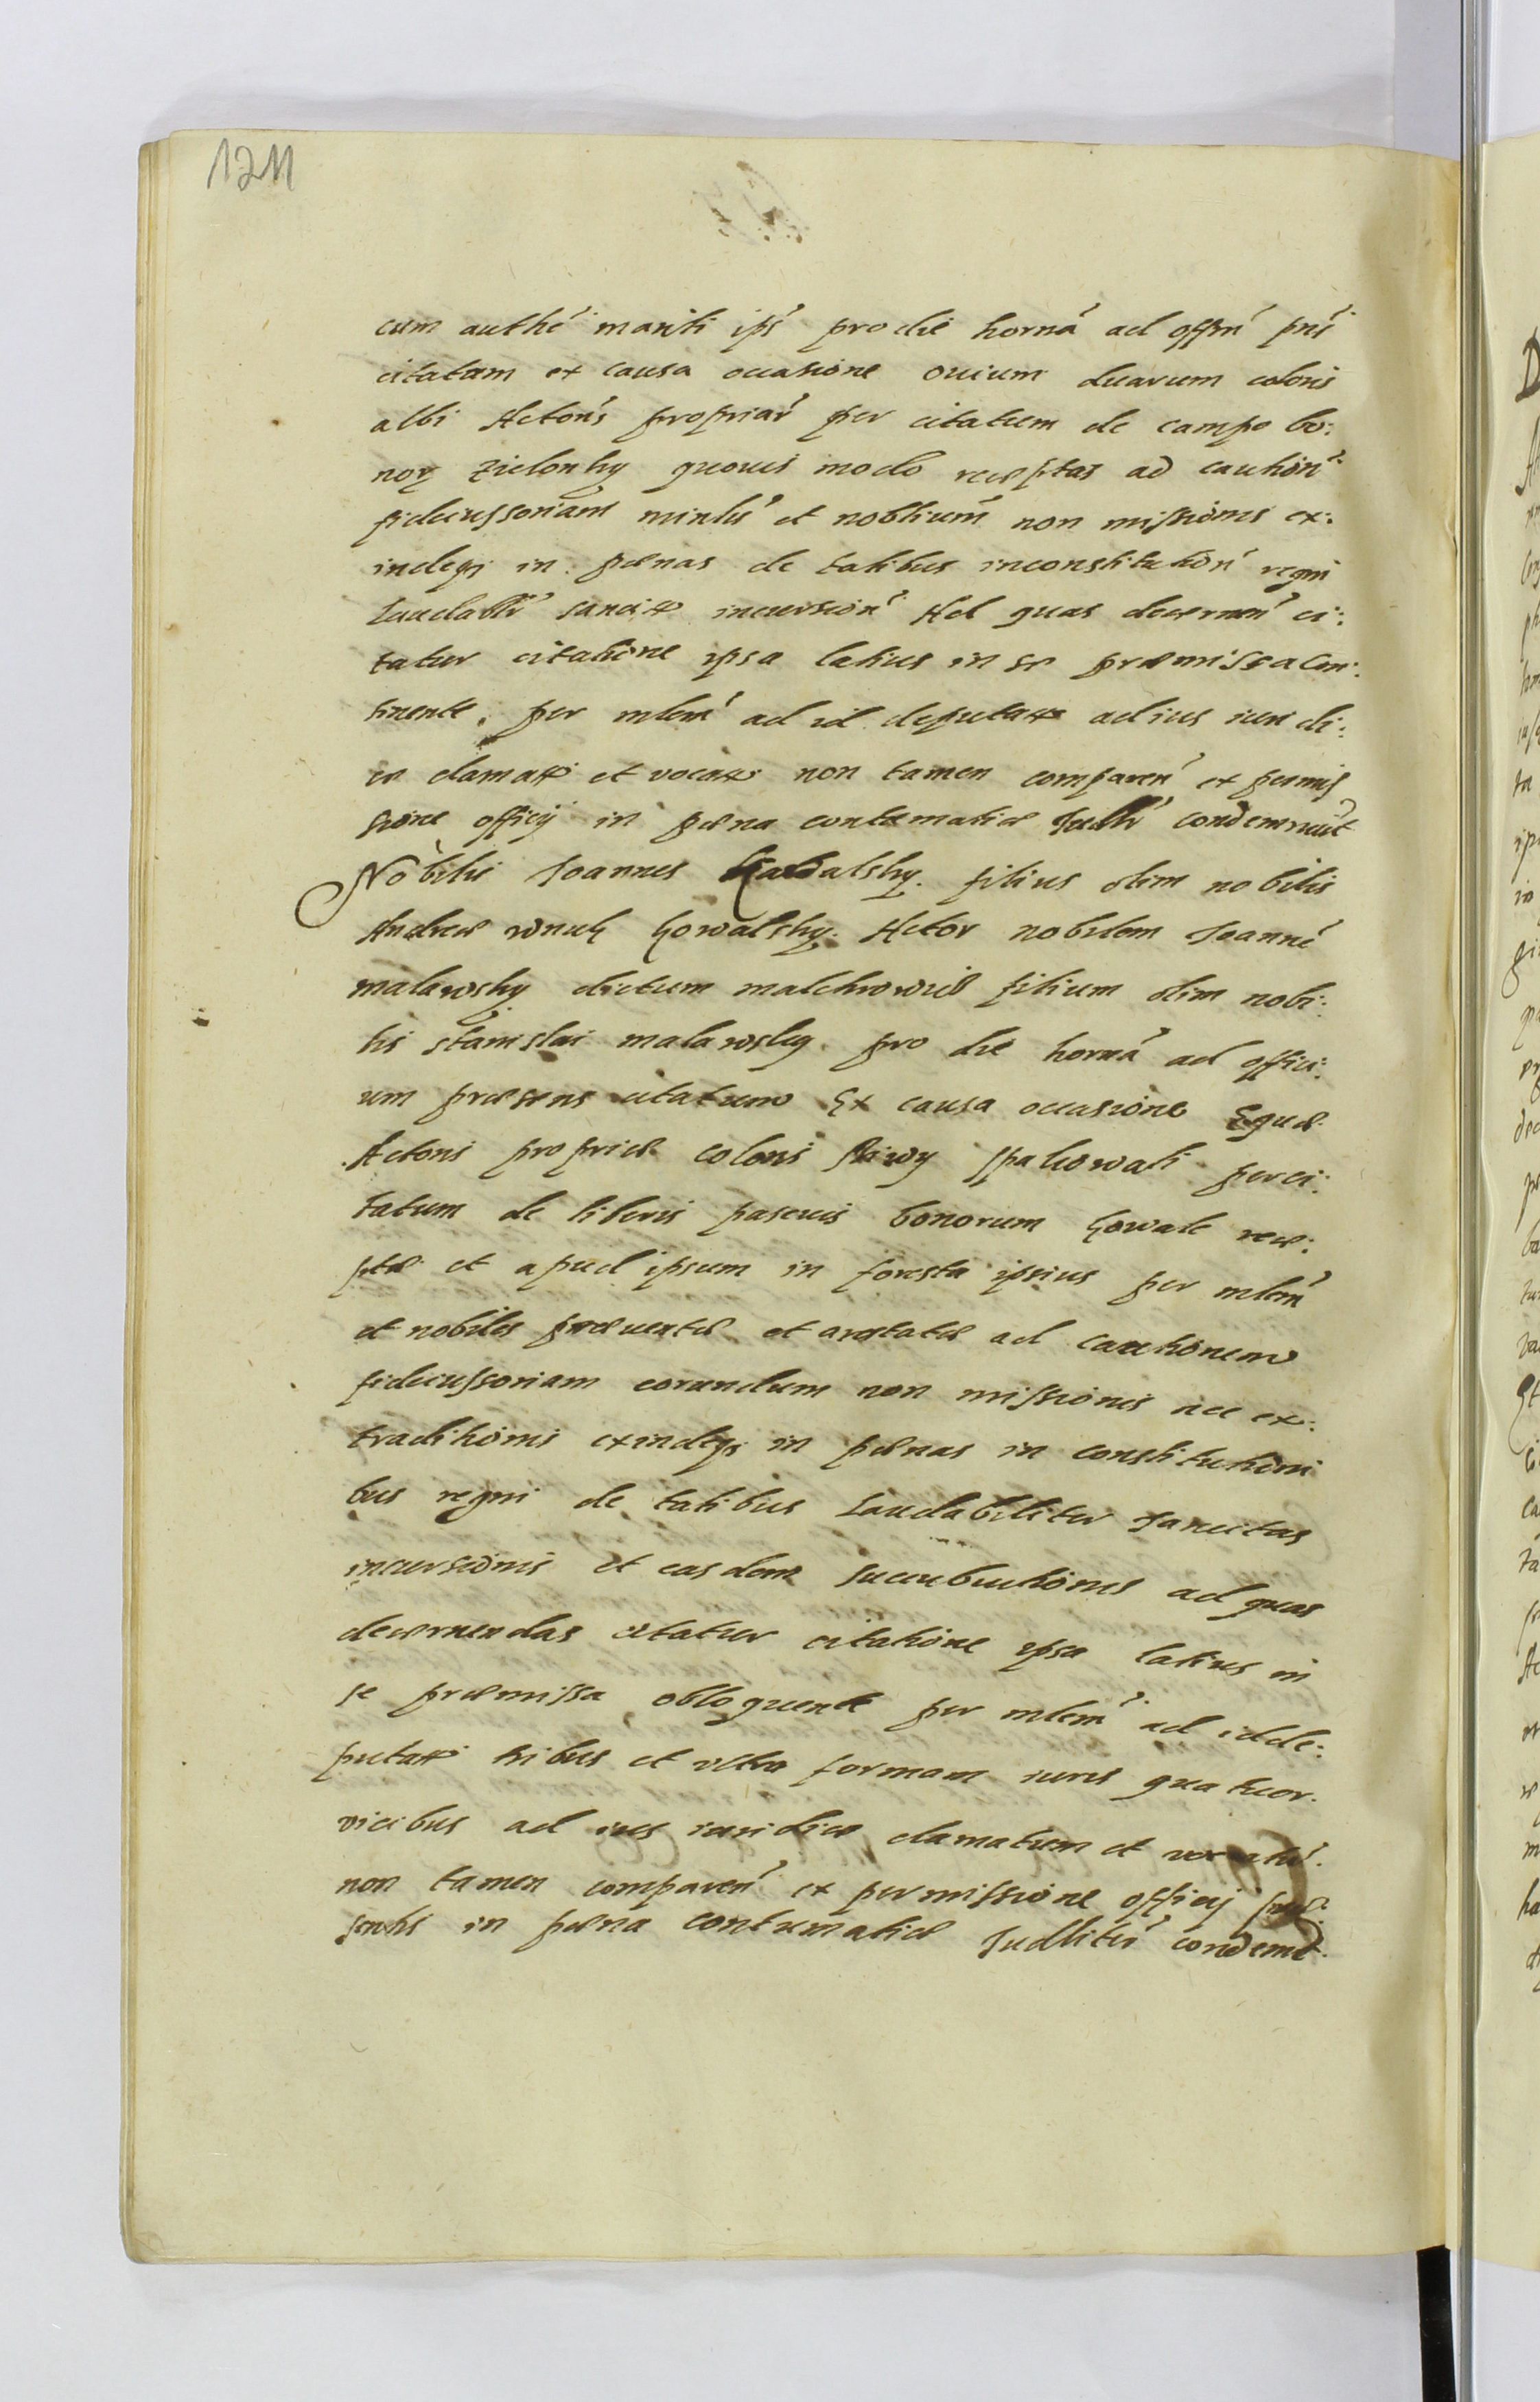 1211
cum authé mariti ips pro die horná ad offm pns
citatam ex causa occasione ouium duarum coloris
albi Actoris propriar per citatum de campo bo:
nor Zielonky quouis modo receptas ad caution
fideiussoriam minlis et nobilium non missionis ex:
indeq in pænas de talibus in constitution regni
laudablr sancitas incursion Ad quas decernen ci:
tatur citatione ipsa latius in se præmissa con:
tinente, per mlem ad id deputatum ad ius iuri di:
ce clamatum et vocatum non tamen comparen ex permis
sione officij in pæna contumatiæ Iudlr condemnauit
Nobilis Joannes Kowalsky. filius olim nobilis
Andreæ wnuk Kowalsky. Actor nobilem Joanné
malawsky dictum malchrowicz filium olim nobi:
lis stanislai malawsky. pro die horná ad offici:
um præsens citatum Ex causa occasione Equæ
Actoris propriæ coloris siwy spalowati per ci:
tatum de liberis pascuis bonorum Kowale rece:
ptæ et apud ipsum in foresta ipsius per mlem
et nobiles præuentæ et arestatæ ad cautionem
fideiussoriam eorundum non missionis nec ex:
traditionis exindeq in pænas in constitutioni
bus regni de talibus laudabiliter sancitas
incursionis et easdem succubutionis ad quas
decernendas citatur citatione ipsa latius in
se præmissa obloquente per mlem ad id de:
putatum tribus et vltra formam iuris quatuor
vicibus ad ius iuridice clamatum et vocatú.
non tamen comparen ex permissione officij præ
sentis in pæna contumatiæ Iudlitér condemt.